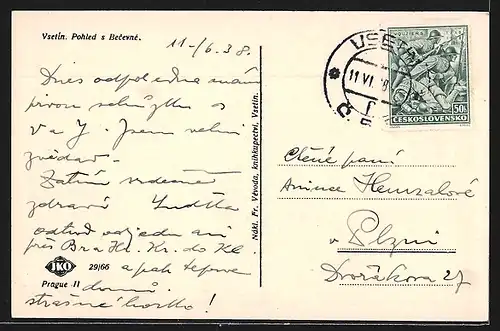 Vsetín. Pohled s Bečevné.
11-/6.38.
Dnes odpoledne mám
prvou schůzku s
V a J. Jsem velmi
zvědav-
Zatím srdečně
zdraví Luďka
odtud odjedu asi
přes Br a Hr. Kr. do Kl.
a pak teprve
domů.
strašné horko!
JKO
29/66
Prague II
Nákl. Fr. Vévoda, knihkupectví, Vsetín.
VSETÍN
11.VI.
VOUZIERS
50h
ČESKOSLOVENSKO
Ctěné paní
Aninse Hemzalové
v Plzni
Dvořákova 27